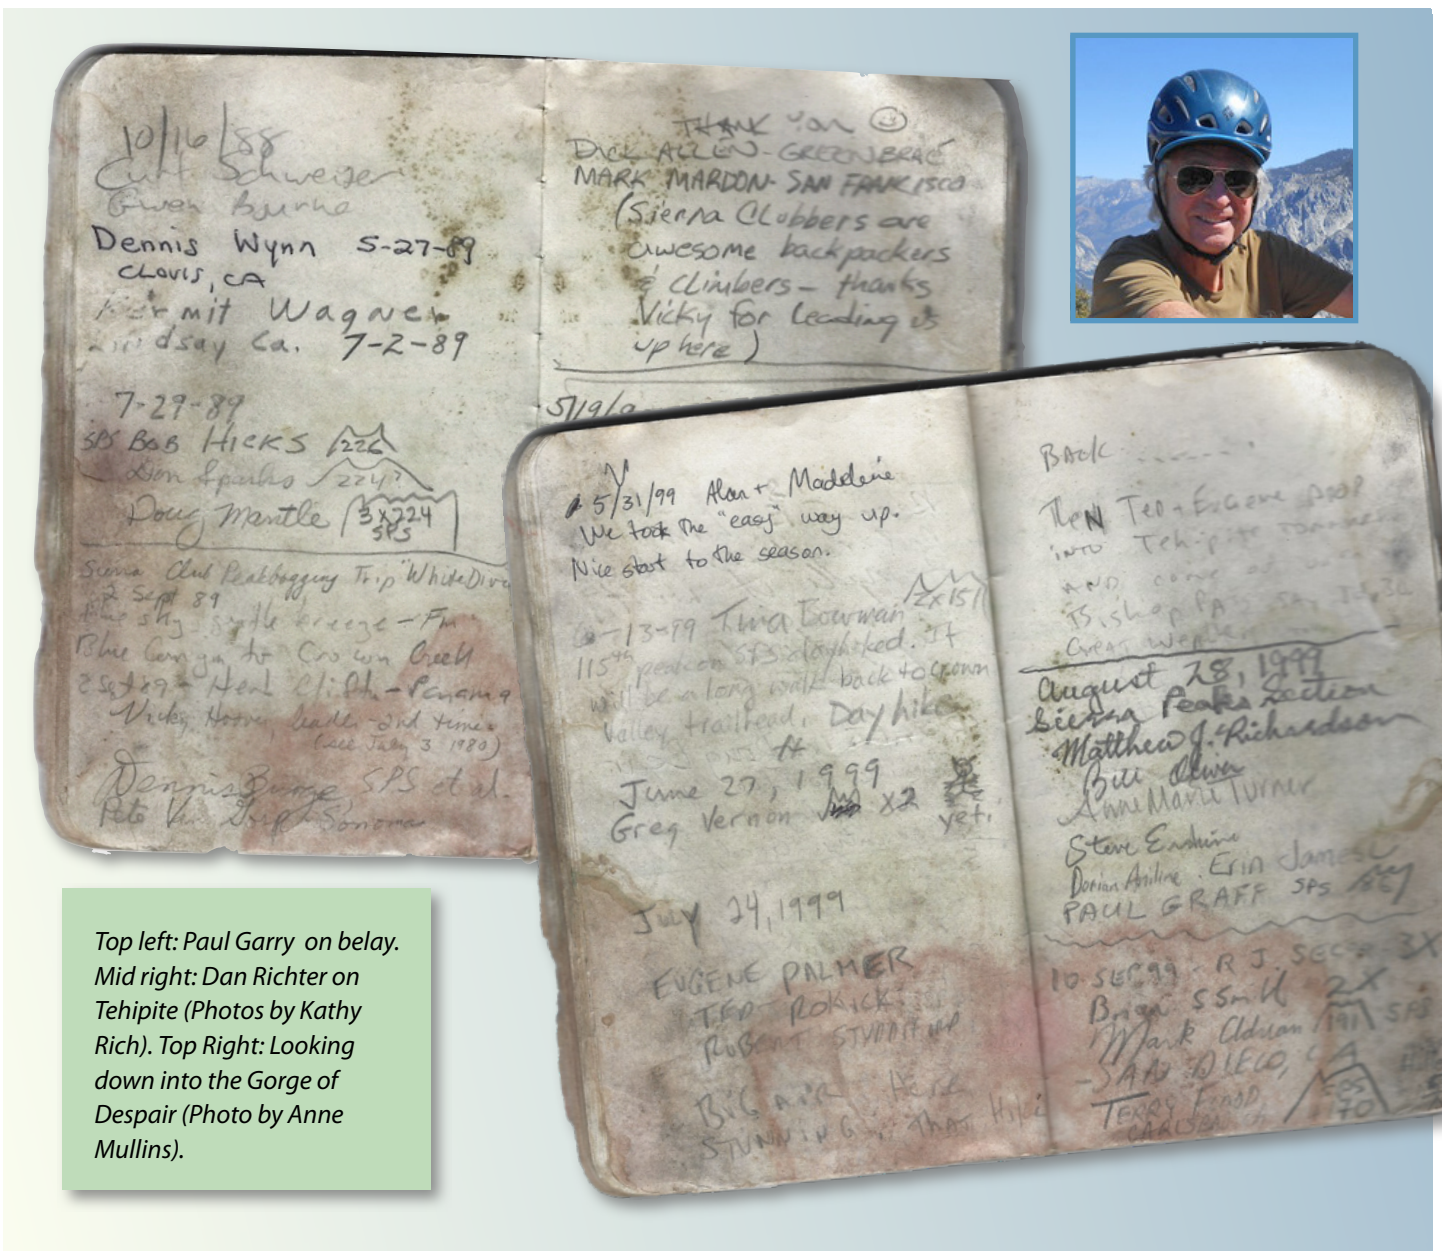 10/16/88
Curt Schweizer
Gwen Byrne
Dennis Wynn 5-27-89
CLOVIS, CA
Kermit Wagner
Lindsay Ca. 7-2-89
7-29-89
SPS BOB HICKS 226
Don Sparks 224
Doug Mantle 3X224
SPS
Sierra Club Peakbagging Trip "White Div
2 Sept 89
blue sky, gentle breeze - Fm
Blue Canyon to Crown Creek
- Panama
Vicky Hoover, leader - 2nd time
(see July 3 1980)
Dennis Burge, SPS et al.
Pete Sonoma
THANK YOU
DICK ALLEN - GREENBRAE
MARK MARDON - SAN FRANCISCO
(Sierra Clubbers are
awesome backpackers
& climbers - thanks
Vicky for leading us
up here)
5/19/9
5/31/99 Alan + Madeleine
We took the "easy" way up.
Nice start to the season.
6-13-99 Tina Bowman 2x151
115th peak on SPS dayhiked. It
will be a long walk back to crown
valley trailhead. Day hike
June 27, 1999
Greg Vernon X2 yet!
July 24, 1999
EUGENE PALMER
TED ROKICKI
ROBERT
BIG AIR Here
STUNNING
BACK
THEN TED + EUGENE DROP
INTO Tehipite
AND come
Bishop PASS
Great weather
August 28, 1999
Sierra Peaks Section
Matthew J. Richardson
Bill Oliver
Anne Marie Turner
Steve Erskine
Dorian Erin James
PAUL GRAFF SPS
10 SEP 99 - R J. SECOR 3X
Brian S Smith 2X
Mark Adrian 191 SPS
SAN DIEGO, CA
TERRY FLOOD
CARLSBAD
Top left: Paul Garry on belay.
Mid right: Dan Richter on
Tehipite (Photos by Kathy
Rich). Top Right: Looking
down into the Gorge of
Despair (Photo by Anne
Mullins).